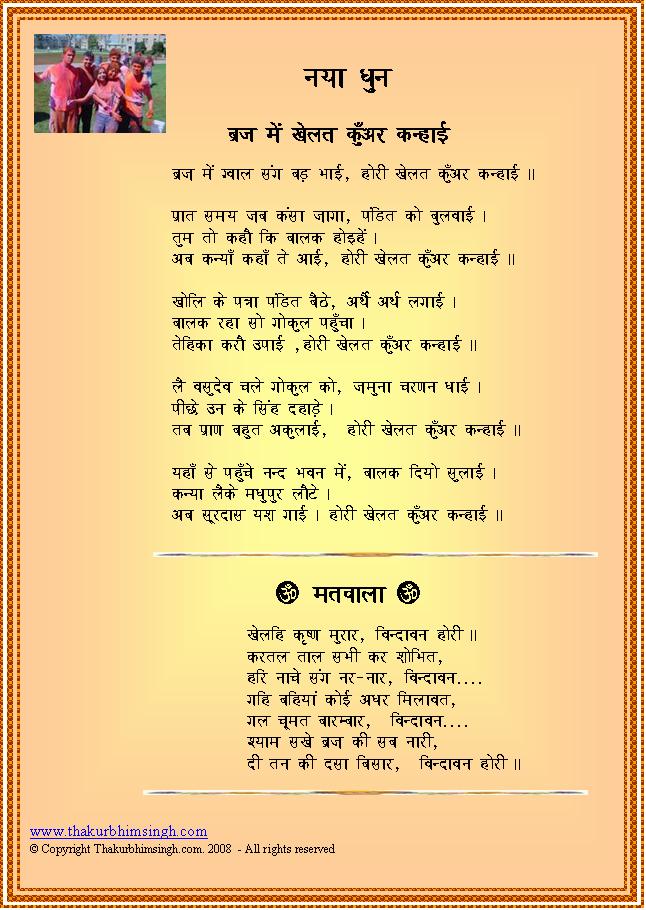 नया धुन
ब्रज में खेलत कुँअर कन्हाई
ब्रज में ग्वाल संग बड़ भाई, होरी खेलत कुँअर कन्हाई ॥
प्रात समय जब कंसा जागा, पंडित को बुलवाई ।
तुम तो कहौ कि बालक होइहें ।
अब कन्याँ कहाँ ते आई, होरी खेलत कुँअर कन्हाई ॥
खोलि के पत्रा पंडित बैठे, अर्थै अर्थ लगाई ।
बालक रहा सो गोकुल पहुँचा ।
तेहिका करौ उपाई ,होरी खेलत कुँअर कन्हाई ॥
लै वसुदेव चले गोकुल को, जमुना चरणन धाई ।
पीछे उन के सिंह दहाड़े ।
तब प्राण बहुत अकुलाई, होरी खेलत कुँअर कन्हाई ॥
यहाँ से पहुँचे नन्द भवन में, बालक दियो सुलाई ।
कन्या लैके मधुपुर लौटे ।
अब सूरदास यश गाई । होरी खेलत कुँअर कन्हाई ॥
ॐ मतवाला ॐ
खेलहि कृष्ण मुरार, विन्दावन होरी ॥
करतल ताल सभी कर शोभित,
हरि नाचे संग नर-नार, विन्दावन....
गहि बहियां कोई अधर मिलावत,
गल चूमत बारम्बार, विन्दावन....
श्याम सखे ब्रज की सब नारी,
दी तन की दसा बिसार, विन्दावन होरी ॥
www.thakurbhimsingh.com
© Copyright Thakurbhimsingh.com. 2008 - All rights reserved